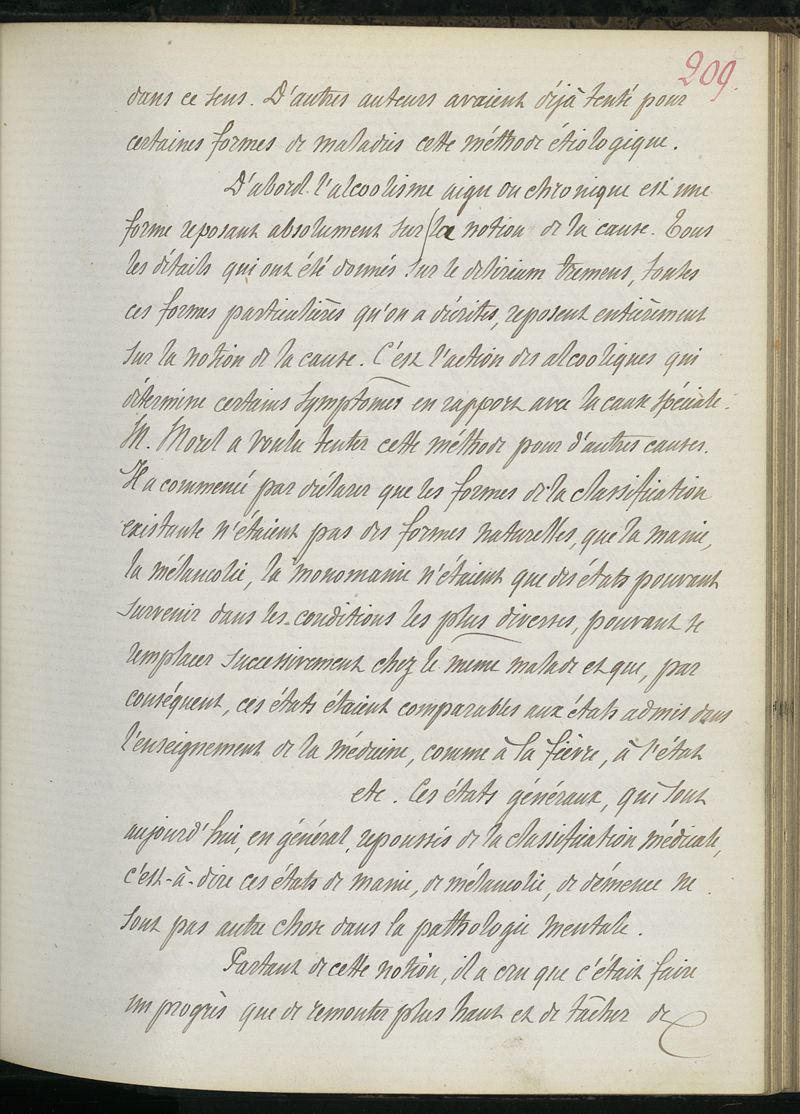 209.
dans ce sens. D'autres auteurs avaient déjà tenté pour
certaines formes de maladies cette méthode étiologique.
D'abord l'alcoolisme aigu ou chronique est une
forme reposant absolument sur la notion de la cause. Tous
les détails qui ont été donnés sur le delirium tremens, toutes
ces formes particulières qu'on a décrites, reposent entièrement
sur la notion de la cause. C'est l'action des alcooliques qui
détermine certains symptômes en rapport avec la cause spéciale.
M. Morel a voulu tenter cette méthode pour d'autres causes.
Il a commencé par déclarer que les formes de la classification
existante n'étaient pas des formes naturelles, que la manie,
la mélancolie, la monomanie n'étaient que des états pouvant
survenir dans les conditions les plus diverses, pouvant se
remplacer successivement chez le même malade et que, par
conséquent, ces états étaient comparables aux états admis dans
l'enseignement de la médecine, comme à la fièvre, à l'état
etc. Ces états généraux, qui sont
aujourd'hui, en général, repoussés de la classification médicale,
c'est-à-dire ces états de manie, de mélancolie, de démence ne
sont pas autre chose dans la pathologie mentale.
Partant de cette notion, il a cru que c'était faire
un progrès que de remonter plus haut et de tâcher de